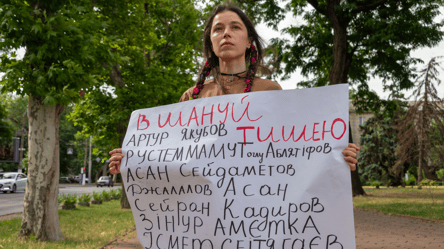 Вшануй
тишею
Артур Якубов
Рустем Мамутошу Аблятіфов
Асан Сейдаметов
Джаллов Асан
Сейран Кадиров
Зінур Аметка